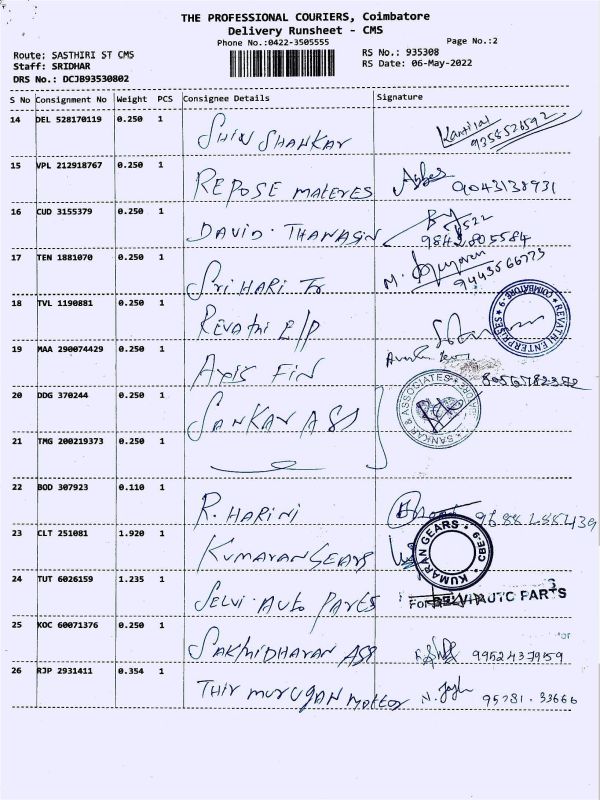 THE PROFESSIONAL COURIERS, Coimbatore
Delivery Runsheet - CMS
Phone No.:0422-3505555
Page No.:2
Route: SASTHIRI ST CMS
RS No.: 935308
Staff: SRIDHAR
RS Date: 06-May-2022
DRS No.: DCJB93530802
S No Consignment No Weight PCS Consignee Details Signature
14 DEL 528170119 0.250 1 Shiv Shankar Kantilal
9358526592
15 VPL 212918767 0.250 1 REPOSE MATERES Abbas 9043138931
16 CUD 3155379 0.250 1 DAVID. THANASIN
9842805584
17 TEN 1881070 0.250 1 Sri HARI Tr M.
9443566773
18 TVL 1190881 0.250 1 Revathi E/P
REVATHI ENTERPRISES COIMBATORE-9
19 MAA 290074429 0.250 1 Axis Fin
20 DDG 370244 0.250 1 SANKAR ASS
SANKAR & ASSOCIATES
21 TMG 200219373 0.250 1
22 BOD 307923 0.110 1 R. HARINI
23 CLT 251081 1.920 1 Kumaran Gears
KUMARAN GEARS CBE-9
24 TUT 6026159 1.235 1 Selvi Auto Parts
For SELVI AUTO PARTS
25 KOC 60071376 0.250 1 Sakthidharan ASS 9952437959
26 RJP 2931411 0.354 1 Thir murugan mottor N. 95781.33666